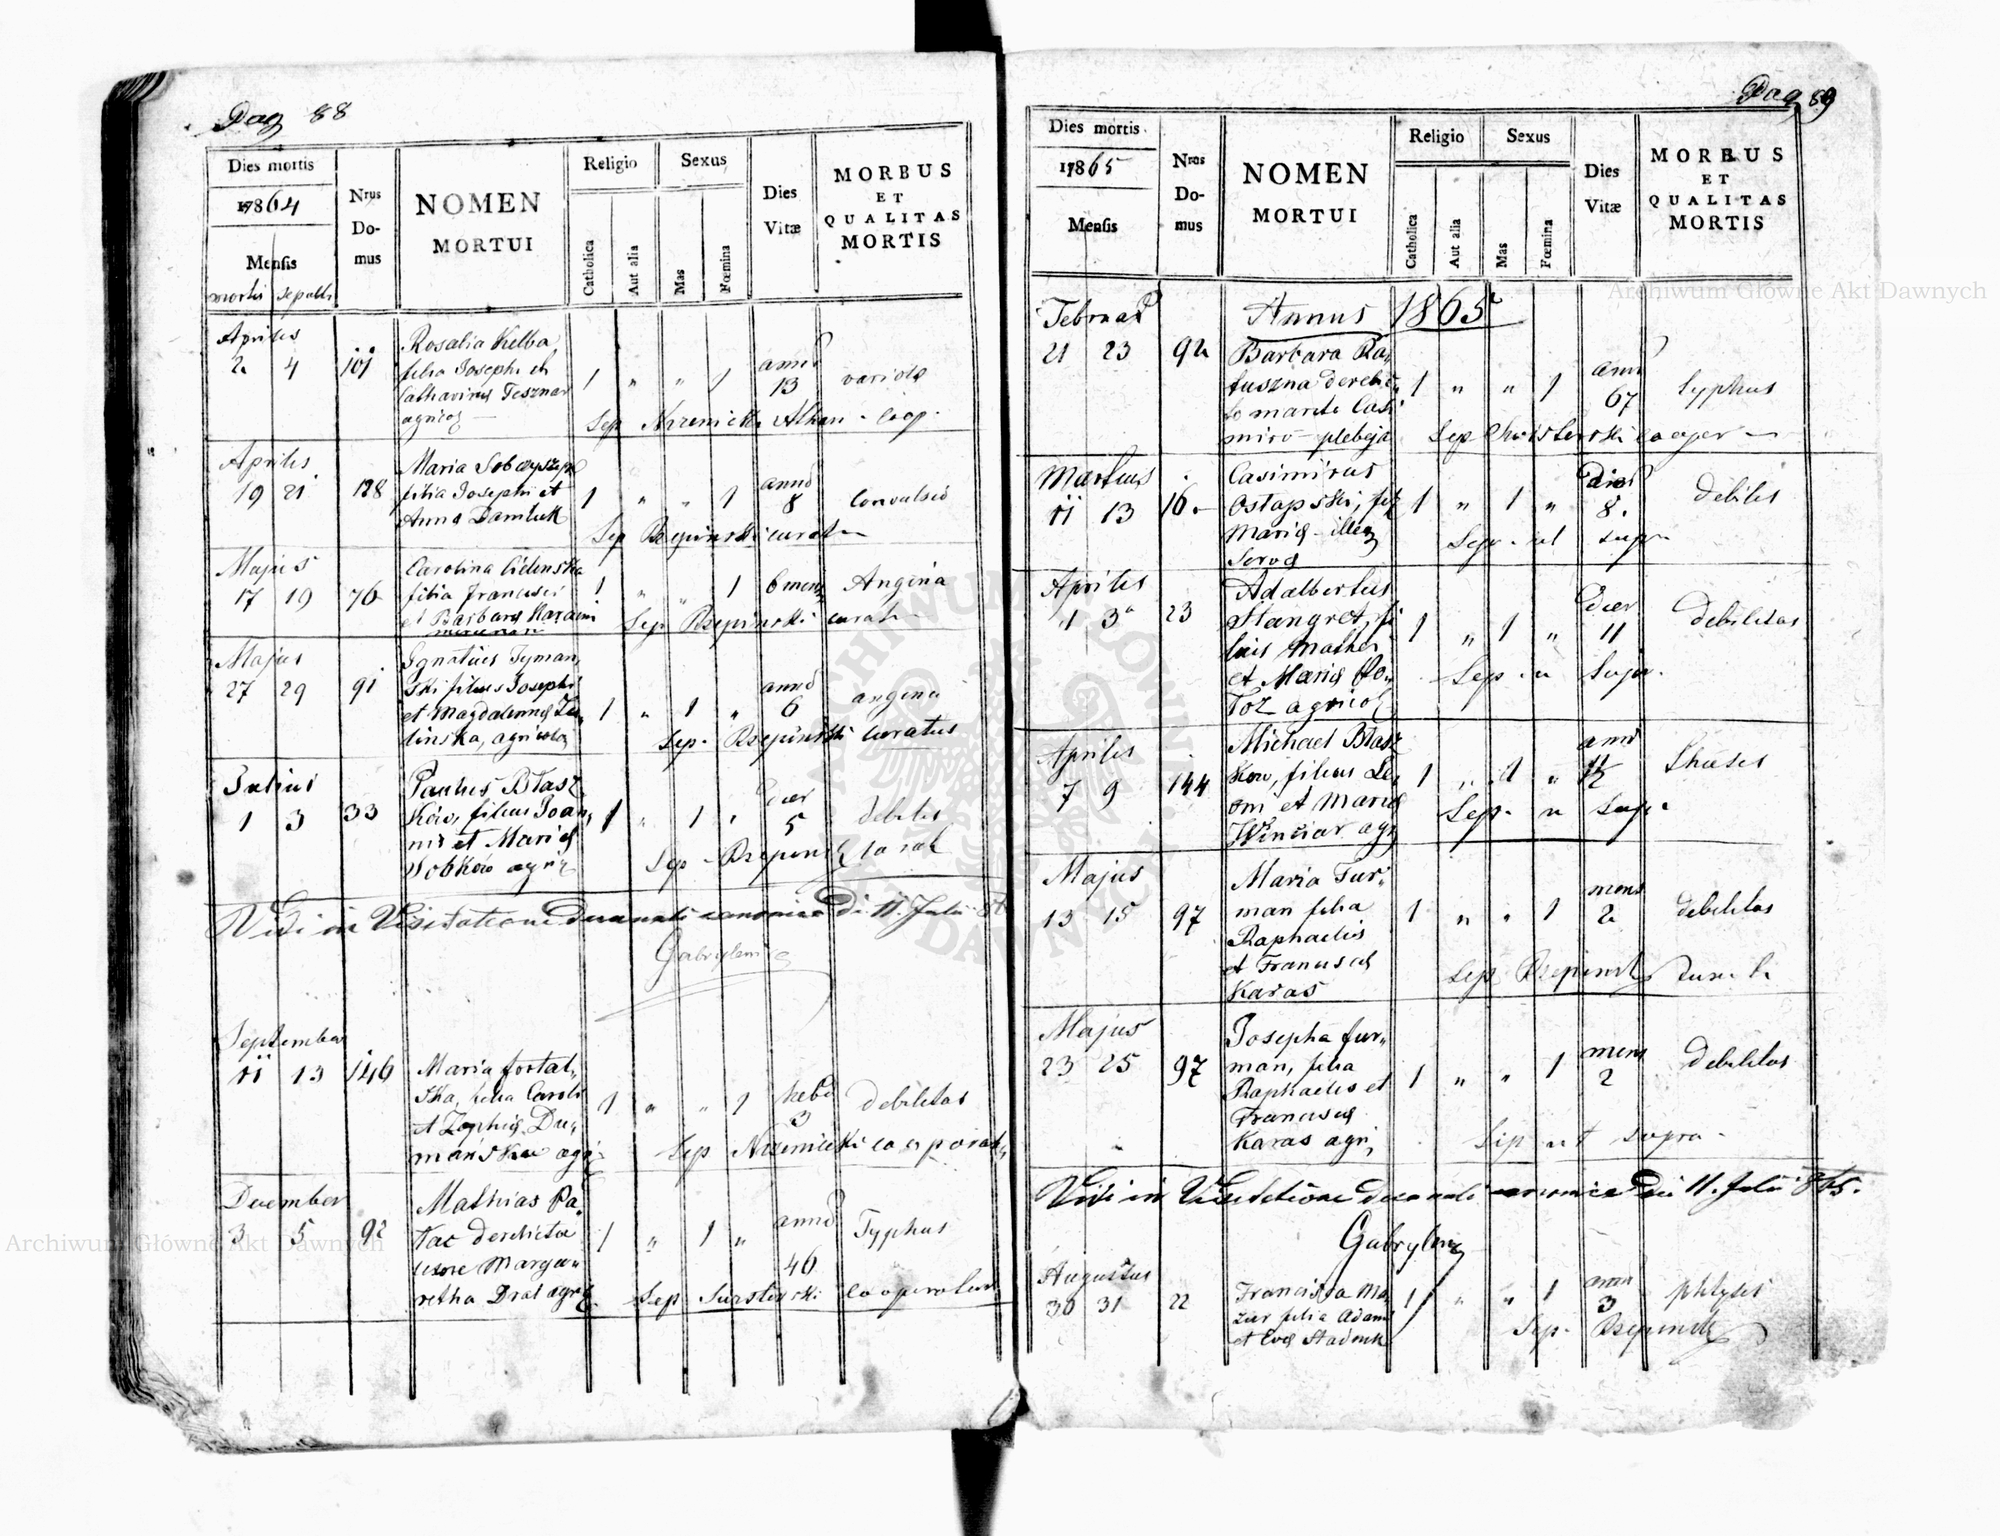 Pag 88
Dies mortis
1864
Mensis
mortis sepult.
Nrus
Do-
mus
NOMEN
MORTUI
Religio
Catholica
Aut alia
Sexus
Mas
Fœmina
Dies
Vitæ
MORBUS
ET
QUALITAS
MORTIS
Aprilis
2 4 101
Rosalia Kelba
filia Josephi et
Catharinæ Tesznar
agricol
1 " " 1
anno
13
variola
Sep coop.
Aprilis
19 21 128
Maria
filia Josephi et
Anna
1 " " 1
anno
8
Convulsio
Sep Rzepinski curat
Majus
17 19 76
Carolina
filia Francisci
et Barbara
1 " " 1
6 mens
Angina
Sep Rzepinski curat
Majus
27 29 91
Ignatius Tyman,
ski filius Josephi
et Magdalenæ
linska, agricola
1 " 1 "
anno
6
angina
Sep. Rzepinski curatus
Julius
1 3 33
Paulus Błasz
ków, filius Joan,
nis et Mariæ
Sobków agri
1 " 1 "
dier
5
debilis
Sep Rzepinsk
Vidi in Visitatione decanali canonica di 11. Julii
September
11 13 146
Maria
ska, filia Caroli
et Zophiæ Du,
mańska agri
1 " " 1
hebd
3
debilitas
Sep cooperat
December
3 5 92
Mathias Pa,
łac derelicta
uxore Marga,
retha Dral agri
1 " 1 "
anno
46
Typhus
Sep cooperator
Pag 89
Dies mortis
1865
Mensis
Nrus
Do-
mus
NOMEN
MORTUI
Religio
Catholica
Aut alia
Sexus
Mas
Fœmina
Dies
Vitæ
MORBUS
ET
QUALITAS
MORTIS
Februar
Annus 1865
21 23 92
Barbara Ra,
tuszna derelic,
to marito Casi
miro plebeja
1 " " 1
ann
67
typhus
Sep cooper
Martius
11 13 16
Casimirus
Ostapski, fil
Mariæ illeg
serva
1 " 1 "
dies
8.
debilis
Sep. ut supr
Aprilis
1 3 23
Adalbertus
Stangret, fi
lius Mathei
et Mariæ
agricol
1 " 1 "
dier
11
debilitas
Sep. u Supr.
Aprilis
7 9 144
Michael Błasz
kow, filius Le,
oni et Mariæ
Winiar agr
1 " 1 "
ann
Sep. u Supr
Majus
13 15 97
Maria Fur,
man filia
Raphaelis
et Franciscæ
Karas
1 " " 1
mens
2
debilitas
Sep Rzepinsk
Majus
23 25 97
Josepha Fur,
man, filia
Raphaelis et
Francisca
Karas agri,
1 " " 1
mens
2
debilitas
Sep ut supra
Vidi in Visitatione decanali canonica di 11. Julii 865.
Augustus
30 31 22
Francisca Ma
zur filia Adami
et Evæ
1 " " 1
ann
3
phtysis
Sep. Rzepinsk
Archiwum Główne Akt Dawnych
Archiwum Główne Akt Dawnych
ARCHIWUM GŁÓWNE AKT DAWNYCH